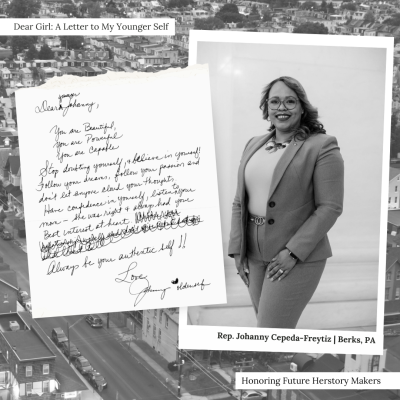 Dear Girl: A Letter to My Younger Self
younger
Dear Johanny,
You are Beautiful,
You are Powerful
You are Capable
Stop doubting yourself, & believe in yourself!
Follow your dreams, follow your passion and
don't let anyone cloud your thoughts,
Have confidence in yourself, listen to your
mom - she was right & always had your
Best interest at heart.
Always be your authentic self!!
Love,
Johanny
Rep. Johanny Cepeda-Freytiz | Berks, PA
Honoring Future Herstory Makers